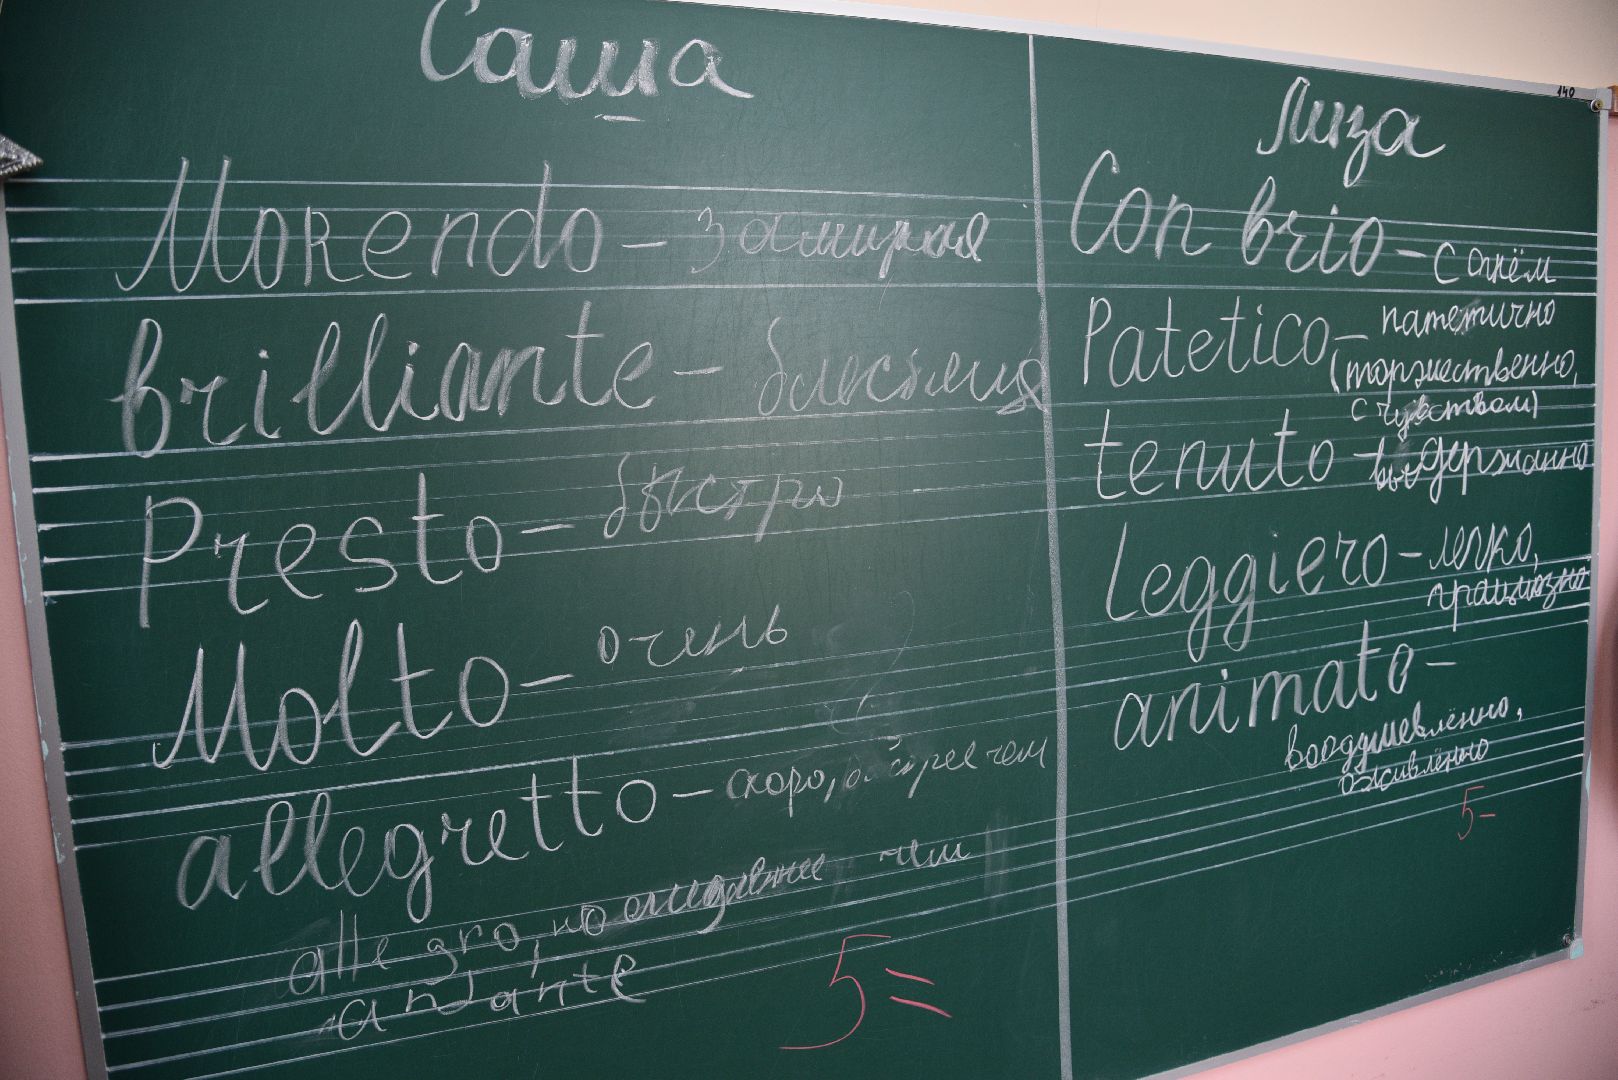 Саша
Morendo – замирая
brilliante – блестяще
Presto – быстро
Molto – очень
allegretto – скоро, быстрее чем
allegro, но медленнее чем
andante
5=
140
Лиза
Con brio – с огнём
Patetico – патетично
(торжественно,
с чувством)
tenuto – выдержанно
Leggiero – легко,
грациозно
animato –
воодушевлённо,
оживлённо
5-